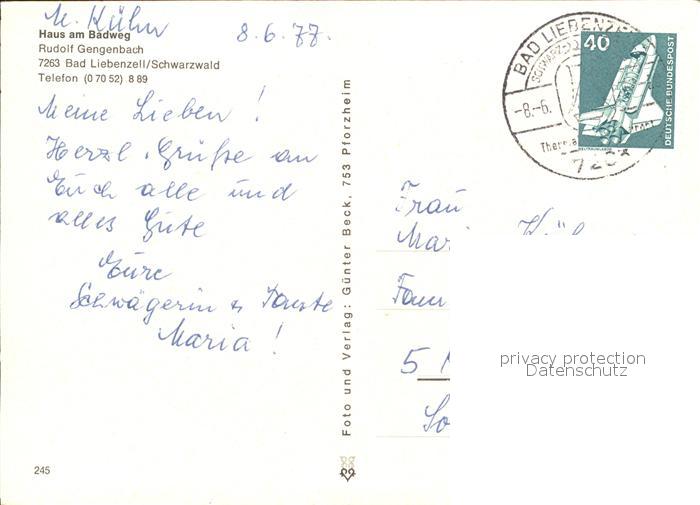 M. Kühn 8.6.77.
Haus am Badweg
Rudolf Gengenbach
7263 Bad Liebenzell/Schwarzwald
Telefon (0 70 52) 8 89
Meine Lieben !
Herzl. Grüße an
Euch alle und
alles Gute
Eure
Schwägerin & Tante
Maria !
245
Foto und Verlag: Günter Beck, 753 Pforzheim
BAD LIEBENZE
-8.-6.
40
DEUTSCHE BUNDESPOST
Frau
Mar
Fam
5
privacy protection
Datenschutz